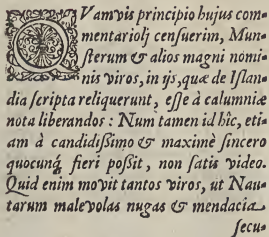 QVamvis principio hujus com-
mentariolj censuerim, Mun-
sterum & alios magni nomi-
nis viros, in ijs, quæ de Islan-
dia scripta reliquerunt, esse à calumniæ
nota liberandos: Num tamen id hîc, eti-
am à candidißimo & maximè sincero
quocunq; fieri poßit, non satis video.
Quid enim movit tantos viros, ut Nau-
tarum malevolas nugas & mendacia
secu-